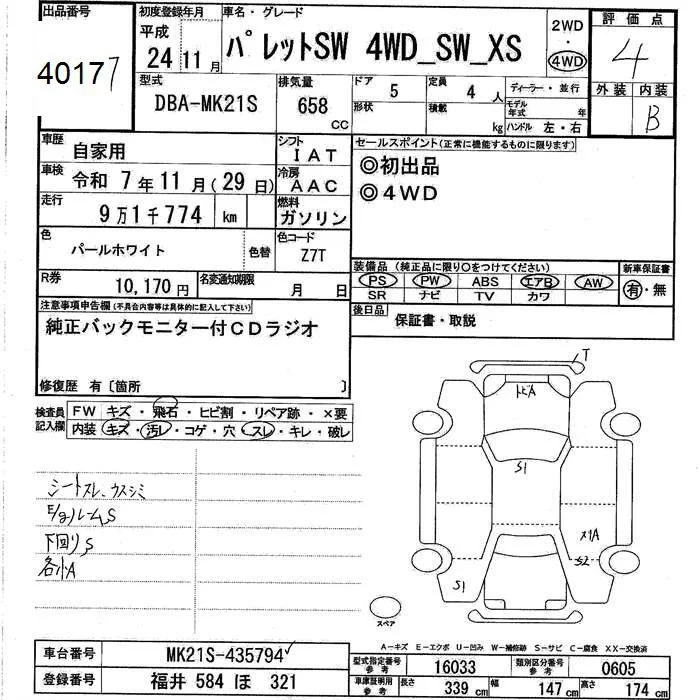 出品番号
40177
初度登録年月
平成
24年11月
車名・グレード
パレットSW 4WD_SW_XS
2WD
・
4WD
評価点
4
外装 内装
B
型式
DBA-MK21S
排気量
658
CC
ドア
5
形状
定員
4人
積載
kg
ディーラー・並行
モデル年式 年
ハンドル 左・右
車歴
自家用
シフト
IAT
車検
令和 7年11月(29日)
冷房
AAC
走行
9万1千774 km
燃料
ガソリン
色
パールホワイト
色替
色コード
Z7T
R券
10,170円
名変通知期限
月 日
セールスポイント(正常に機能するものに限ります)
◎初出品
◎4WD
装備品(純正品に限り○をつけてください)
PS PW ABS エアB AW
SR ナビ TV カワ
新車保証書
有・無
後日品
保証書・取説
注意事項申告欄(不具合内容等は具体的に記入して下さい)
純正バックモニター付CDラジオ
修復歴 有〔箇所 〕
検査員記入欄
FW キズ・飛石・ヒビ割・リペア跡・×要
内装 キズ・汚レ・コゲ・穴・スレ・キレ・破レ
シートスレ、ウスシミ
E/gルームS
下回りS
各小A
T
トビA
S1
メリA
S2
S1
スペア
A－キズ E－エクボ U－凹み W－補修跡 S－サビ C－腐食 XX－交換済
車台番号
MK21S-435794✓
登録番号
福井 584 ほ 321
型式指定番号
参考
16033
類別区分番号
参考
0605
車庫証明用
参考
長さ 339 cm 幅 147 cm 高さ 174 cm